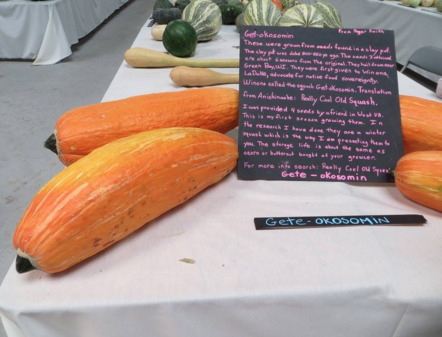 Get-okosomin from Roger Smith
These were grown from seeds found in a clay pot.
The clay pot was date 800-850 yr ago. The seeds I obtained
are about 6 seasons from the original. They hail from near
Green Bay, WI. They were first given to Winona
LaDuke, advocate for native food sovereignty.
Winona called the squash Gete-okosomin. Translation
from Anishinaabe: Really Cool Old Squash.
I was provided 4 seeds by a friend in West VA.
This is my first season growing them. In
the research I have done they are a winter
squash which is the way I am presenting them to
you. The storage life is about the same as
acorn or butternut bought at your grocer.
For more info search: Really Cool Old Squash
Gete-okosomin
Gete-OKOSOMIN